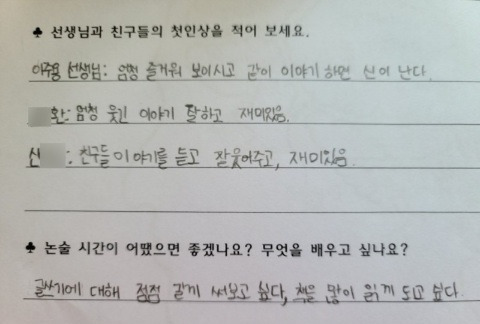 ♣ 선생님과 친구들의 첫인상을 적어 보세요.
이주용 선생님: 엄청 즐거워 보이시고 같이 이야기 하면 신이 난다.
환: 엄청 웃긴 이야기 잘하고 재미있음.
신 : 친구들이야기를 듣고 잘웃어주고, 재미있음.
♣ 논술 시간이 어땠으면 좋겠나요? 무엇을 배우고 싶나요?
글쓰기에 대해 점점 길게 써보고 싶다, 책을 많이 읽게 되고 싶다.